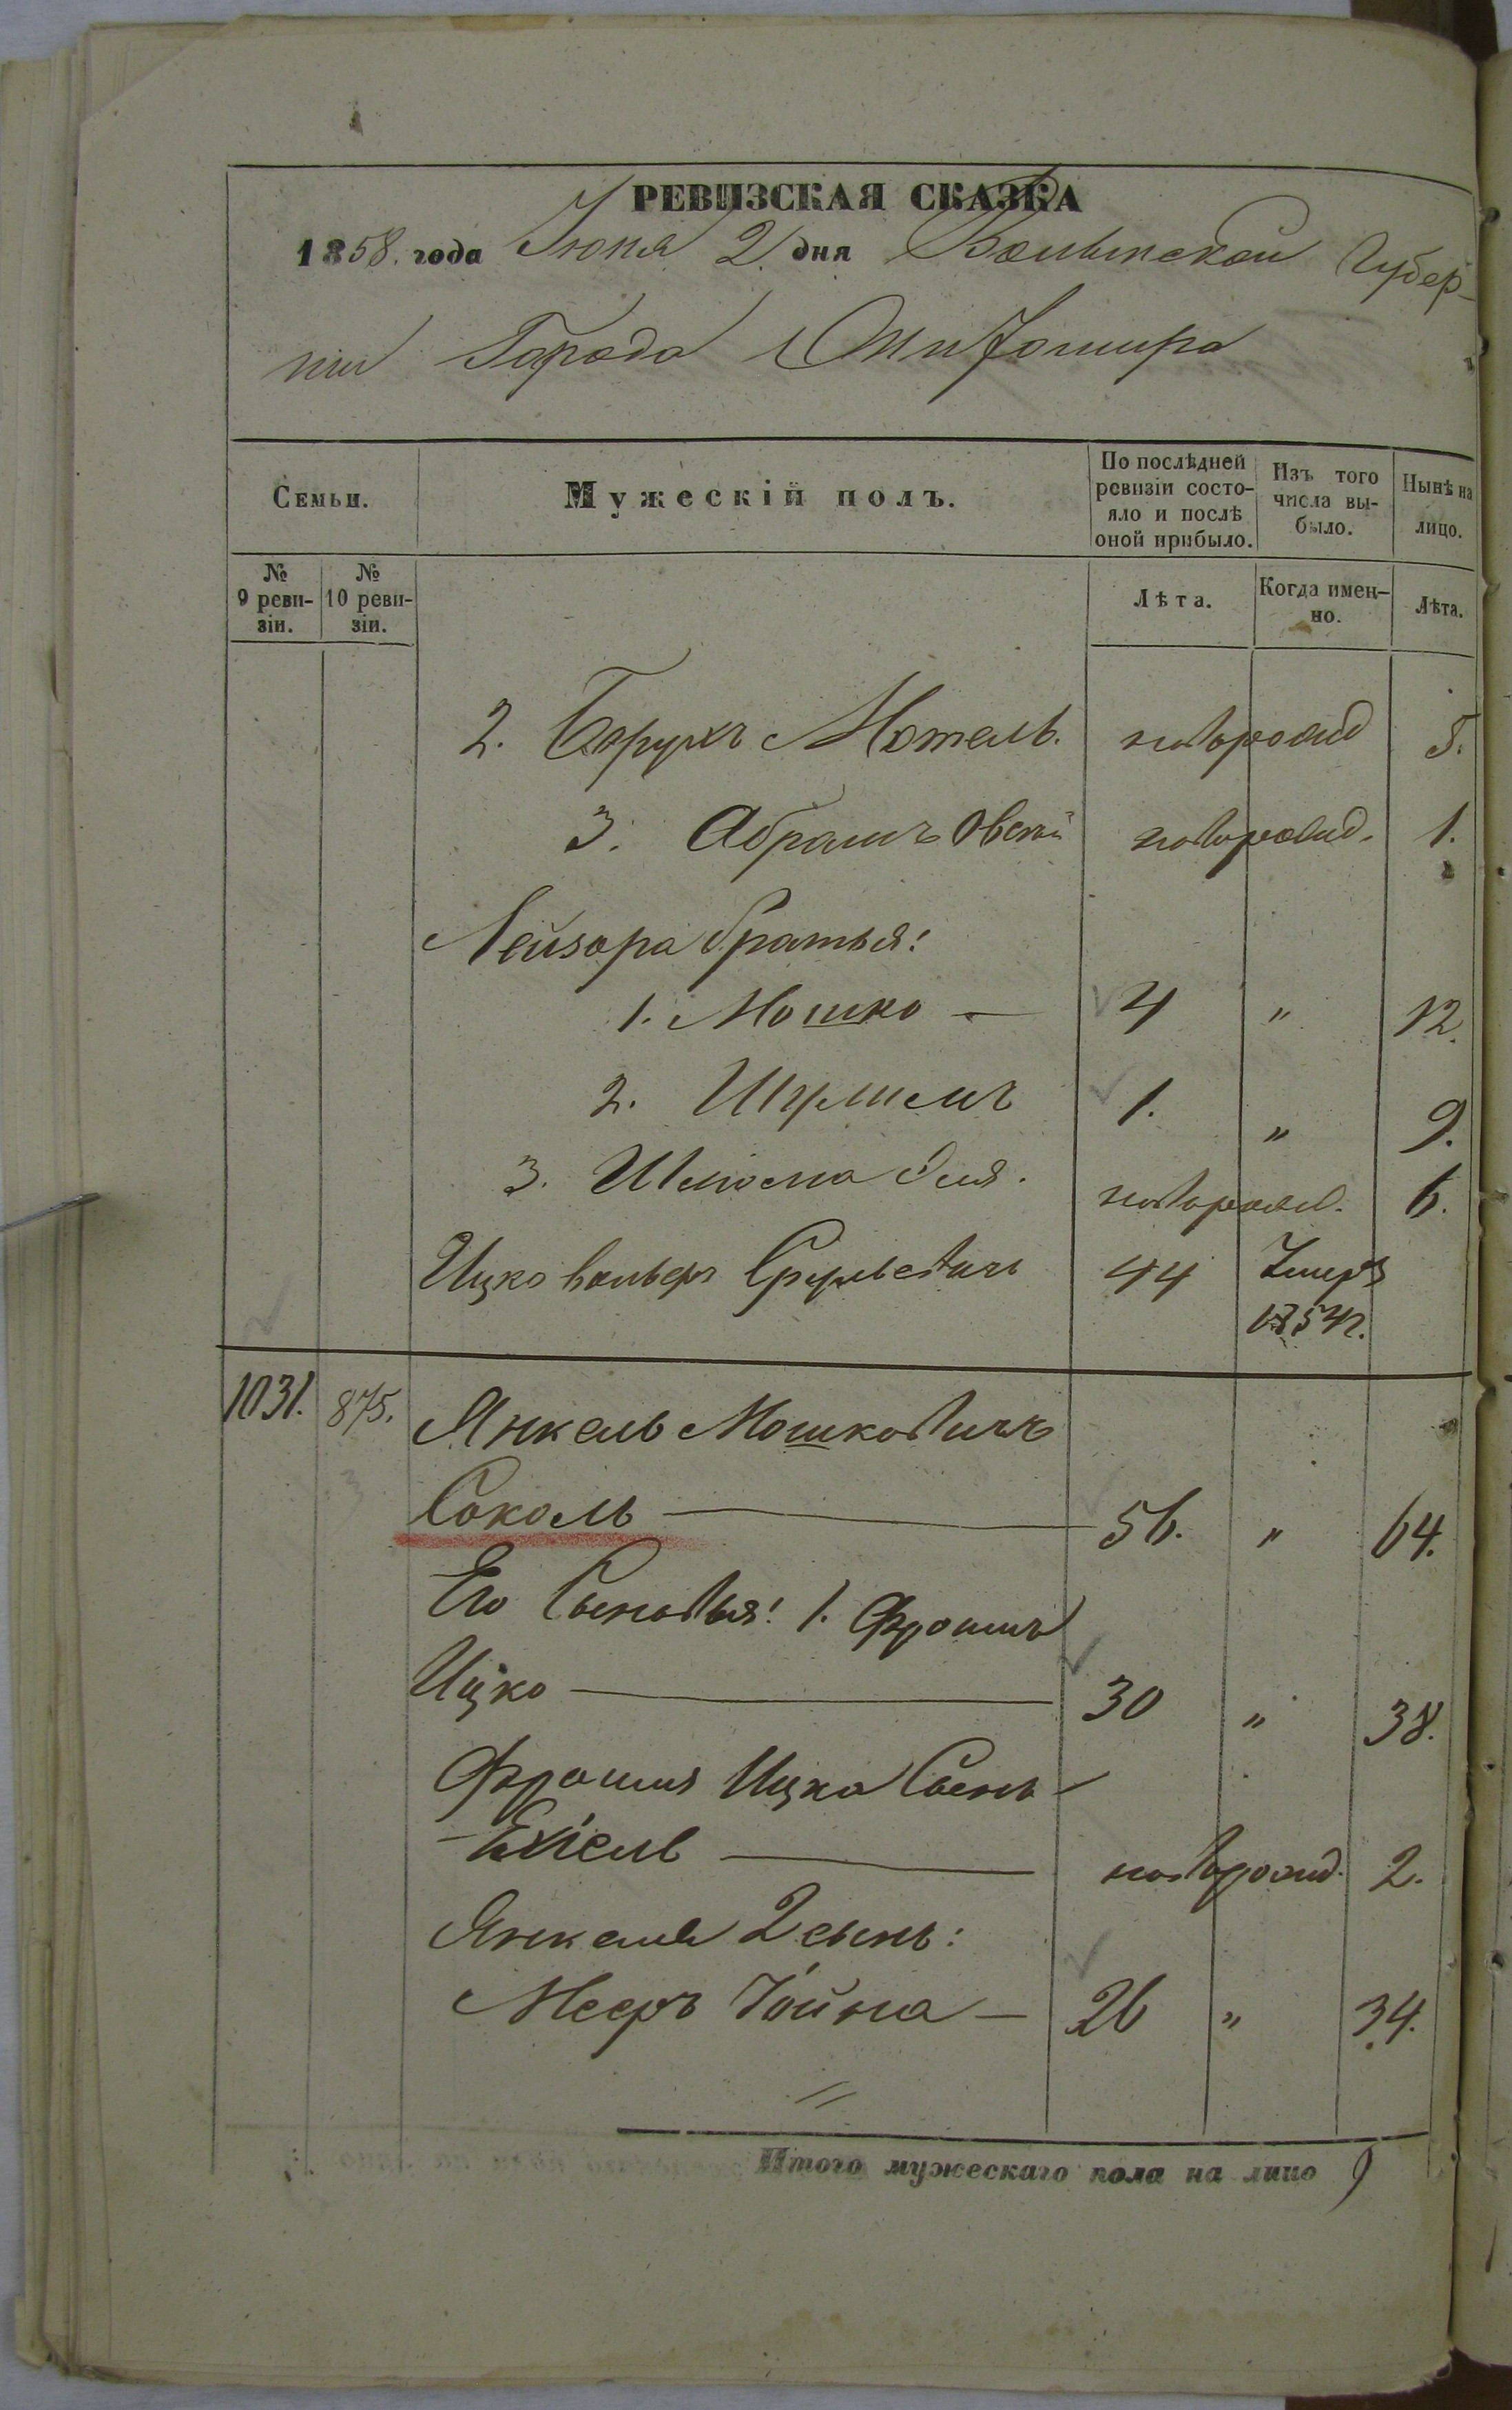 РЕВИЗСКАЯ СКАЗКА
1858. года Июня 2. дня Волынской Губер-
нии Города Житомира
Семьи.
Мужескій полъ.
По послѣдней ревизіи состо- яло и послѣ оной прибыло.
Изъ того числа вы- было.
Нынѣ на лицо.
№ 9 реви- зіи.
№ 10 реви- зіи.
Лѣта.
Когда имен- но.
Лѣта.
2. Борухъ Мотель. новорожд 5.
3. Абрамъ новорожд. 1.
Лейзора братья:
1. Мошко — 4 " 12.
2. Шулимъ 1. " 9.
3. Шлиома Эля. новорожд. 6.
Ицко Вольфъ Срулевичъ 44 Умеръ
1854г.
1031. 875. Янкель Мошковичъ
Соколь — 56. " 64.
Его Сыновья: 1. Фроимъ
Ицко — 30 " 38.
Фроима Ицка Сынъ
Ехіель — новорожд. 2.
Янкеля 2 сынъ:
Мееръ Іойна — 26 " 34.
Итого мужескаго пола на лицо 9